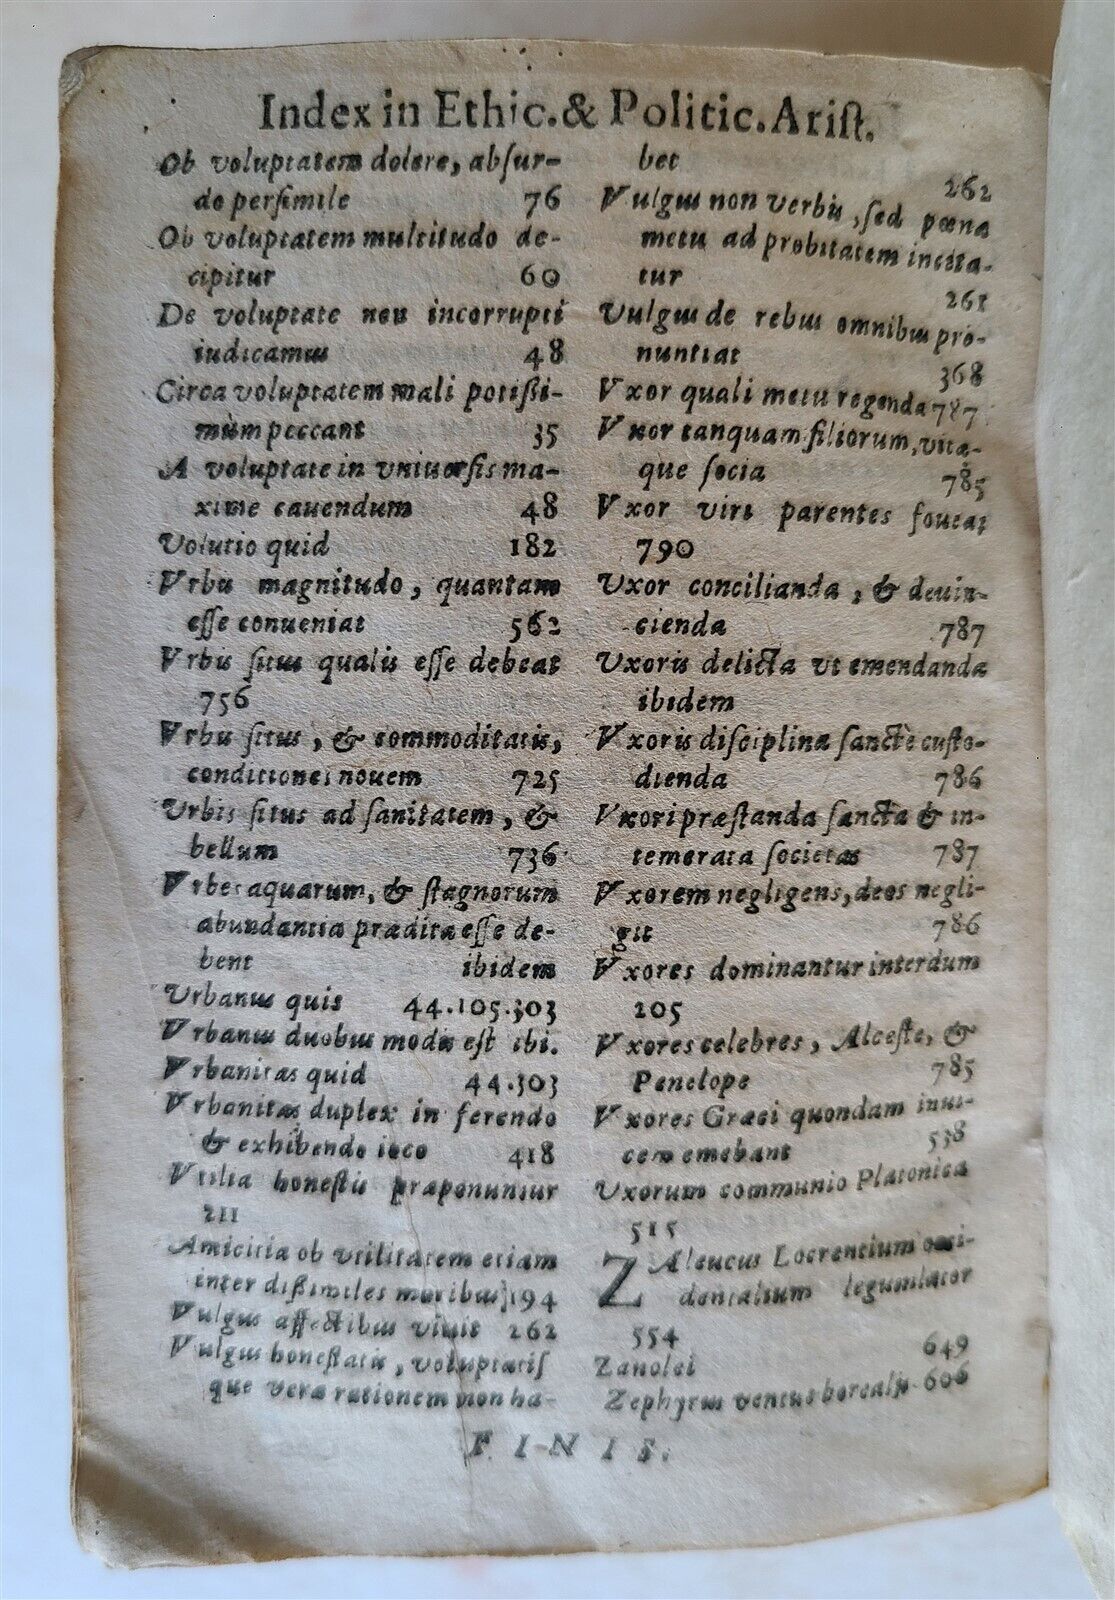 Index in Ethic. & Politic. Arist.
Ob voluptatem dolere, absur-
do persimile 76
Ob voluptatem multitudo de-
cipitur 60
De voluptate non incorrupti
iudicamus 48
Circa voluptatem mali potissi-
mùm peccant 35
A voluptate in vniuersis ma-
xime cauendum 48
Volutio quid 182
Vrbis magnitudo, quantam
esse conueniat 562
Vrbis situs qualis esse debeat
756
Vrbis situs, & commoditatis,
conditiones nouem 725
Urbis situs ad sanitatem, &
bellum 736
Vrbes aquarum, & stagnorum
abundantia præditæ esse de-
bent ibidem
Urbanus quis 44.105.303
Vrbanus duobus modis est ibi.
Vrbanitas quid 44.303
Vrbanitas duplex in ferendo
& exhibendo ioco 418
Vtilia honestis præponuntur
211
Amicitia ob vtilitatem etiam
inter dissimiles moribus 194
Vulgus affectibus viuit 262
Vulgus honestatis, voluptatis
que veræ rationem non ha-
bet 262
Vulgus non verbis, sed pœnæ
metu ad probitatem incita-
tur 261
Vulgus de rebus omnibus pro-
nuntiat 368
Vxor quali metu regenda 787
Vxor tanquam filiorum, vitæ-
que socia 785
Vxor viri parentes foueat
790
Uxor concilianda, & deuin-
cienda 787
Uxoris delicta ut emendanda
ibidem
Vxoris disciplina sanctè custo-
dienda 786
Vxori præstanda sancta & in-
temerata societas 787
Vxorem negligens, deos negli-
git 786
Vxores dominantur interdum
205
Vxores celebres, Alceste, &
Penelope 785
Vxores Græci quondam inui-
cem emebant 538
Uxorum communio Platonica
515
ZAleucus Locrentium occi-
dentalium legumlator
554
Zanolei 649
Zephyrus ventus borealis 606
FINIS.